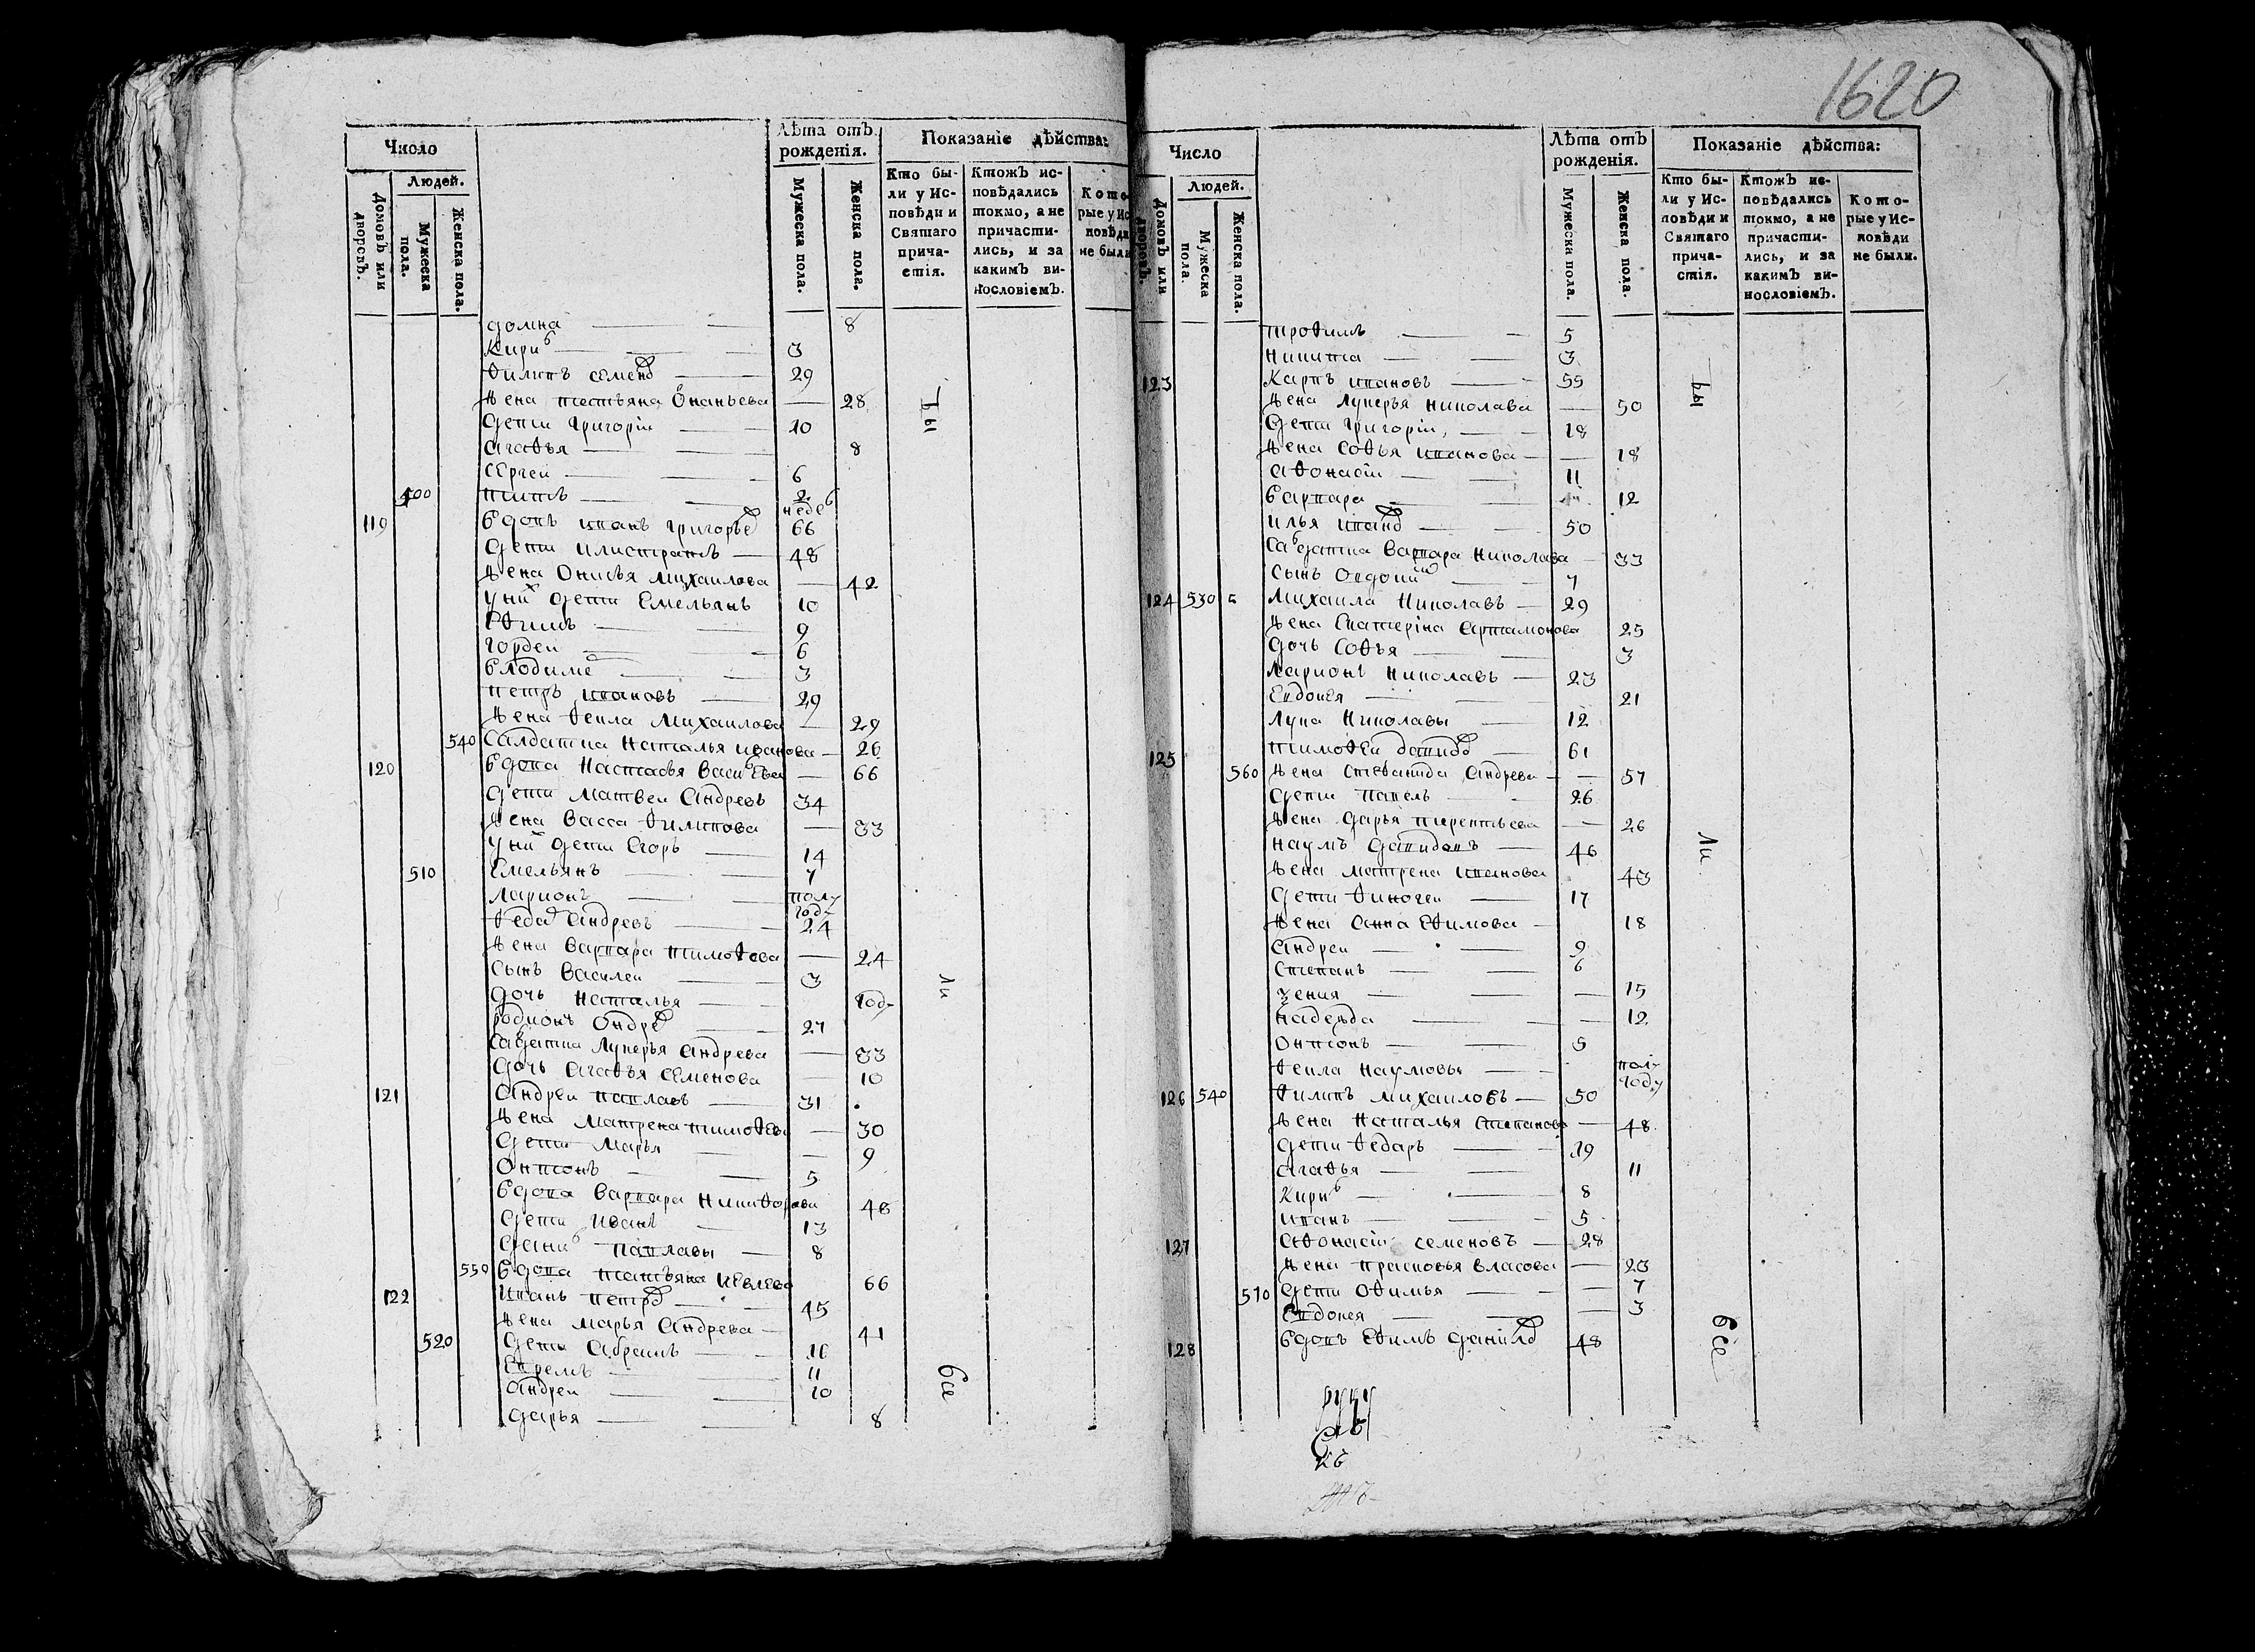 1620
Число
Людей.
Домовъ или дворовъ.
Мужеска пола.
Женска пола.
Лѣта отъ рожденія.
Мужеска пола.
Женска пола.
Показаніе дѣйства:
Кто были у Исповѣди и Святаго причастія.
Ктожъ исповѣдались токмо, а не причастились, и за какимъ винословіемъ.
Которые у Исповѣди не были.
домна 8
Кирил 3
Филипъ семенов 29
Жена татьяна Ѳнаньева 28
дети григории 10
агафья 8
сергеи 6
500 титъ 2 неде
119 вдовъ иванъ григорьев 66
дети илистратъ 48
Жена Онисья михаилова 42
у них дети Емельянъ 10
Ефимъ 9
гордеи 6
владимер 3
петръ ивановъ 29
Жена фекла михаилова 29
540 салдатка наталья иванова 26
120 вдова настасья васильева 66
дети матвеи андревъ 34
Жена васса филипова 33
у них дети егоръ 14
510 Емельянъ 7
ларионъ пол году
федор андревъ 24
Жена варвара тимофеева 24
сынъ василеи 3
дочь наталья году
родионъ ондрев 27
салдатка лукерья андрева 33
дочь агафья семенова 10
121 андреи павлавъ 31
Жена матрена тимофева 30
дети марья 9
Онтонъ 5
вдова варвара никифорова 48
дети иванъ 13
данил павлавы 8
550 вдова татьяна иевлева 66
122 иванъ петров 45
Жена марья андрева 41
520 дети абрамъ 16
Ефремъ 11
андреи 10
дарья 8
бы
ли
все
Число
Людей.
Домовъ или дворовъ.
Мужеска пола.
Женска пола.
Лѣта отъ рожденія.
Мужеска пола.
Женска пола.
Показаніе дѣйства:
Кто были у Исповѣди и Святаго причастія.
Ктожъ исповѣдались токмо, а не причастились, и за какимъ винословіемъ.
Которые у Исповѣди не были.
трофимъ 5
никита 3
123 карпъ ивановъ 55
Жена лукерья николава 50
дети григории 18
Жена софья иванова 18
афонасіи 11
варвара 12
илья иванов 50
салдатка варвара николава 33
сынъ 7
124 530 михаила николавъ 29
Жена екатеріна артамонова 25
дочь софья 3
ларионъ николавъ 23
евдокея 21
лука николавы 12
125 тимофеи давидов 61
560 Жена стефанида андрева 57
дети павелъ 26
Жена дарья терентьева 26
наумъ давидовъ 46
Жена матрена иванова 43
дети финогеи 17
Жена анна ефимова 18
андреи 9
степанъ 6
зения 15
надежда 12
Онтонъ 5
фекла наумовы пол году
126 540 филипъ михаиловъ 50
Жена наталья степанова 48
дети федаръ 19
агафья 11
кирил 8
иванъ 5
127 афонасіи семеновъ 28
Жена прасковья власова 23
570 дети офимья 7
евдокея 3
128 вдовъ Ефимъ данилов 48
бы
ли
все
руку